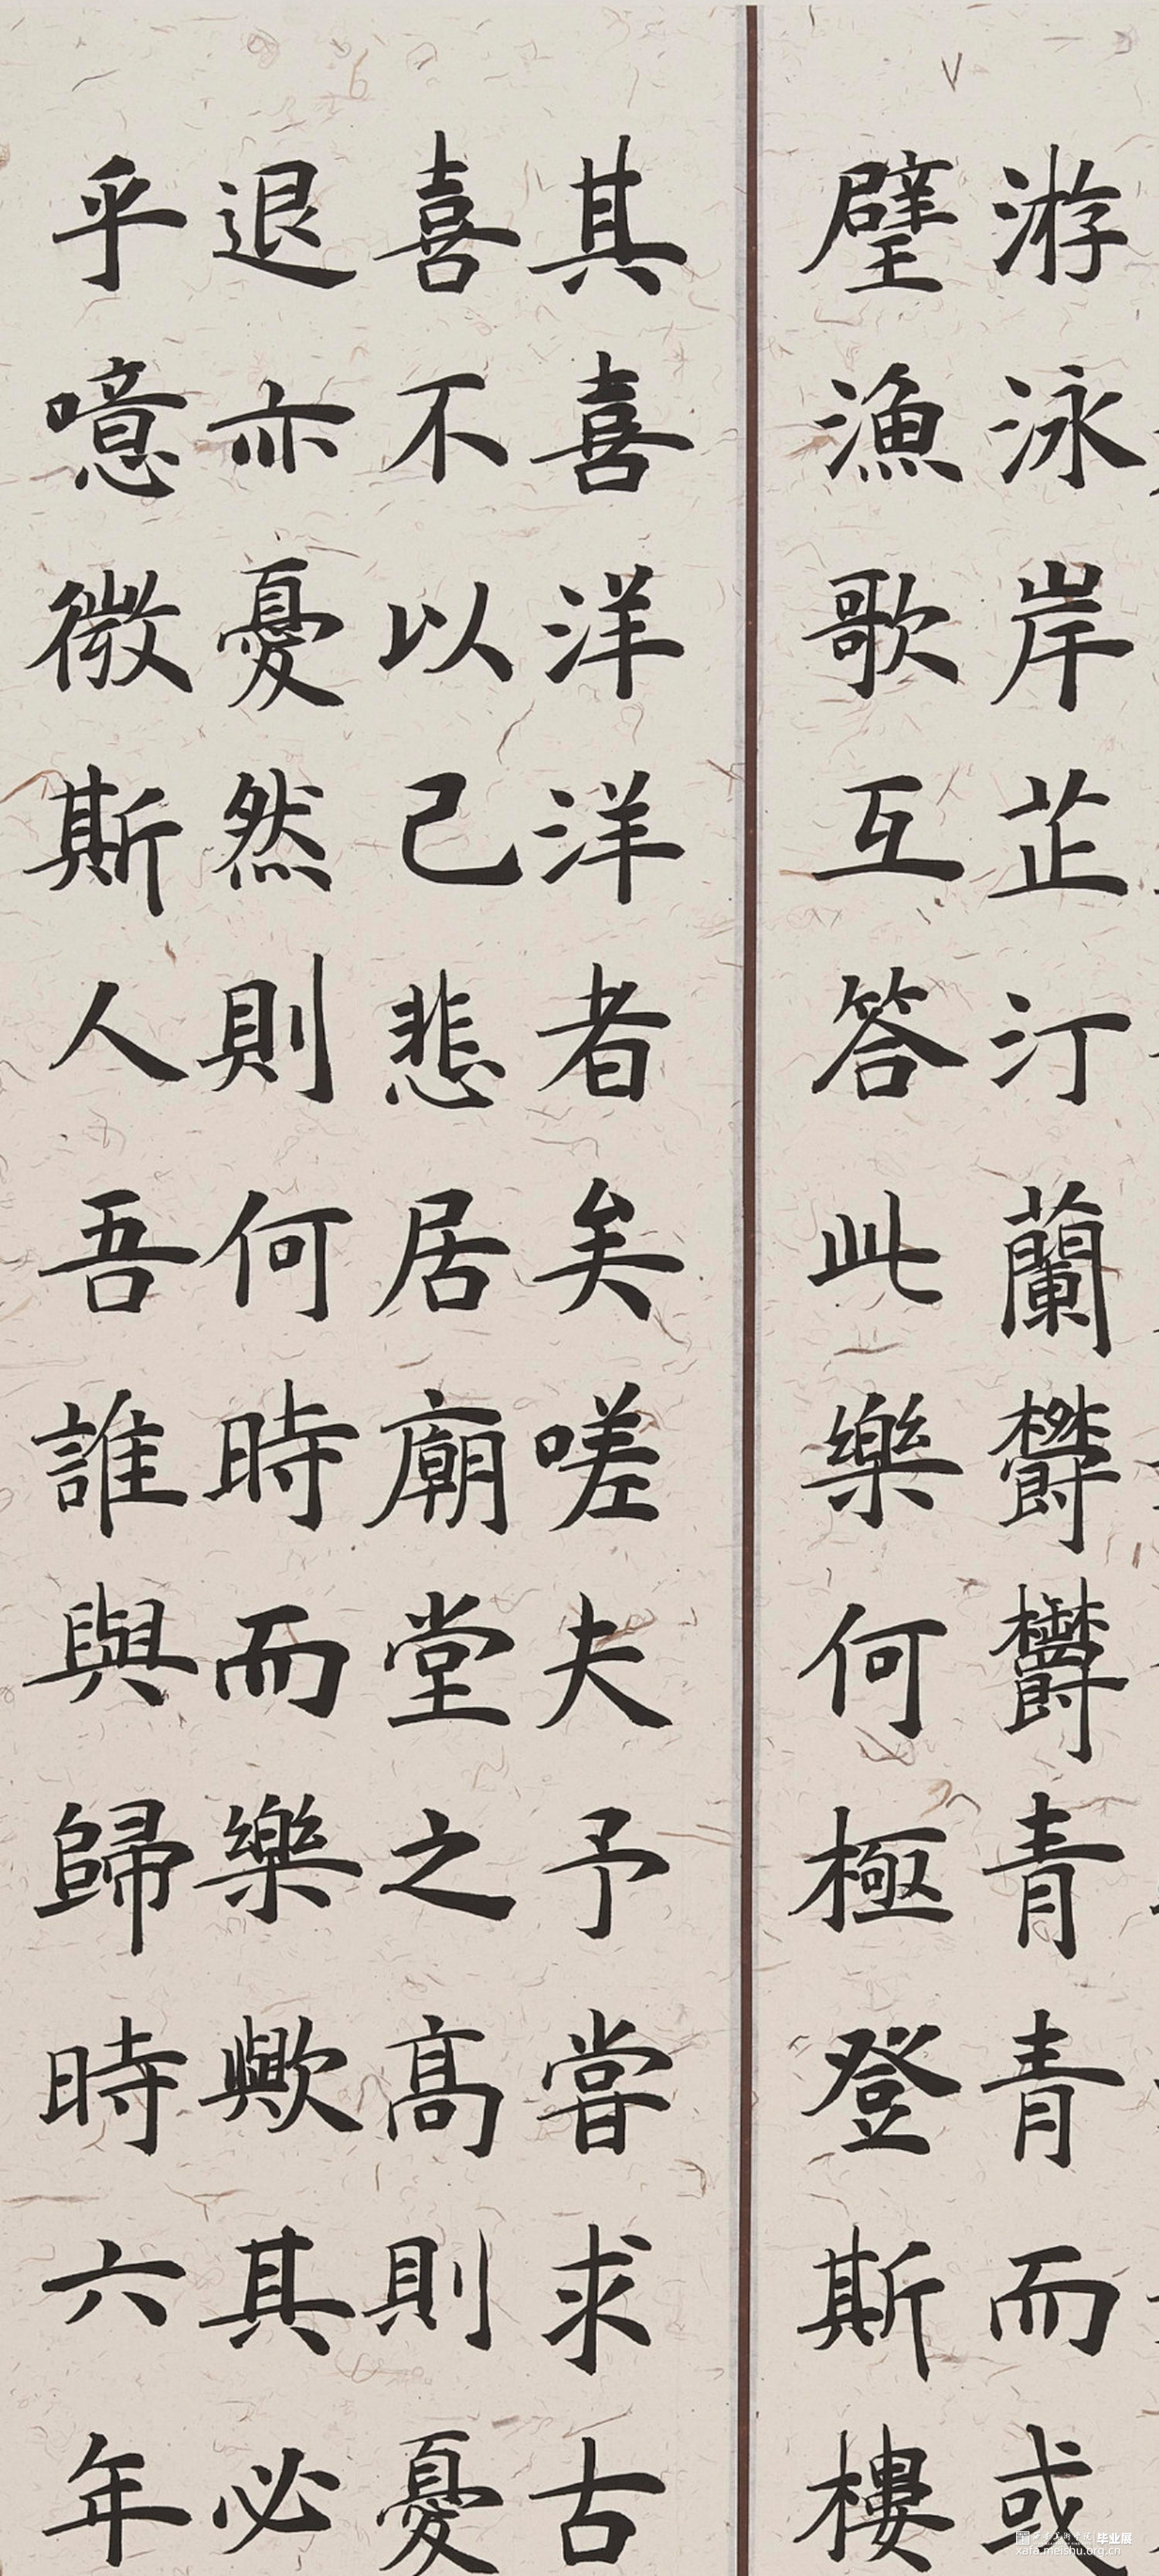 游泳岸芷汀蘭欝欝青青而或
璧漁歌互答此樂何極登斯樓
其喜洋洋者矣嗟夫予嘗求古
喜不以己悲居廟堂之高則憂
退亦憂然則何時而樂歟其必
乎噫微斯人吾誰與歸時六年
毕业展
xafa.meishu.org.cn